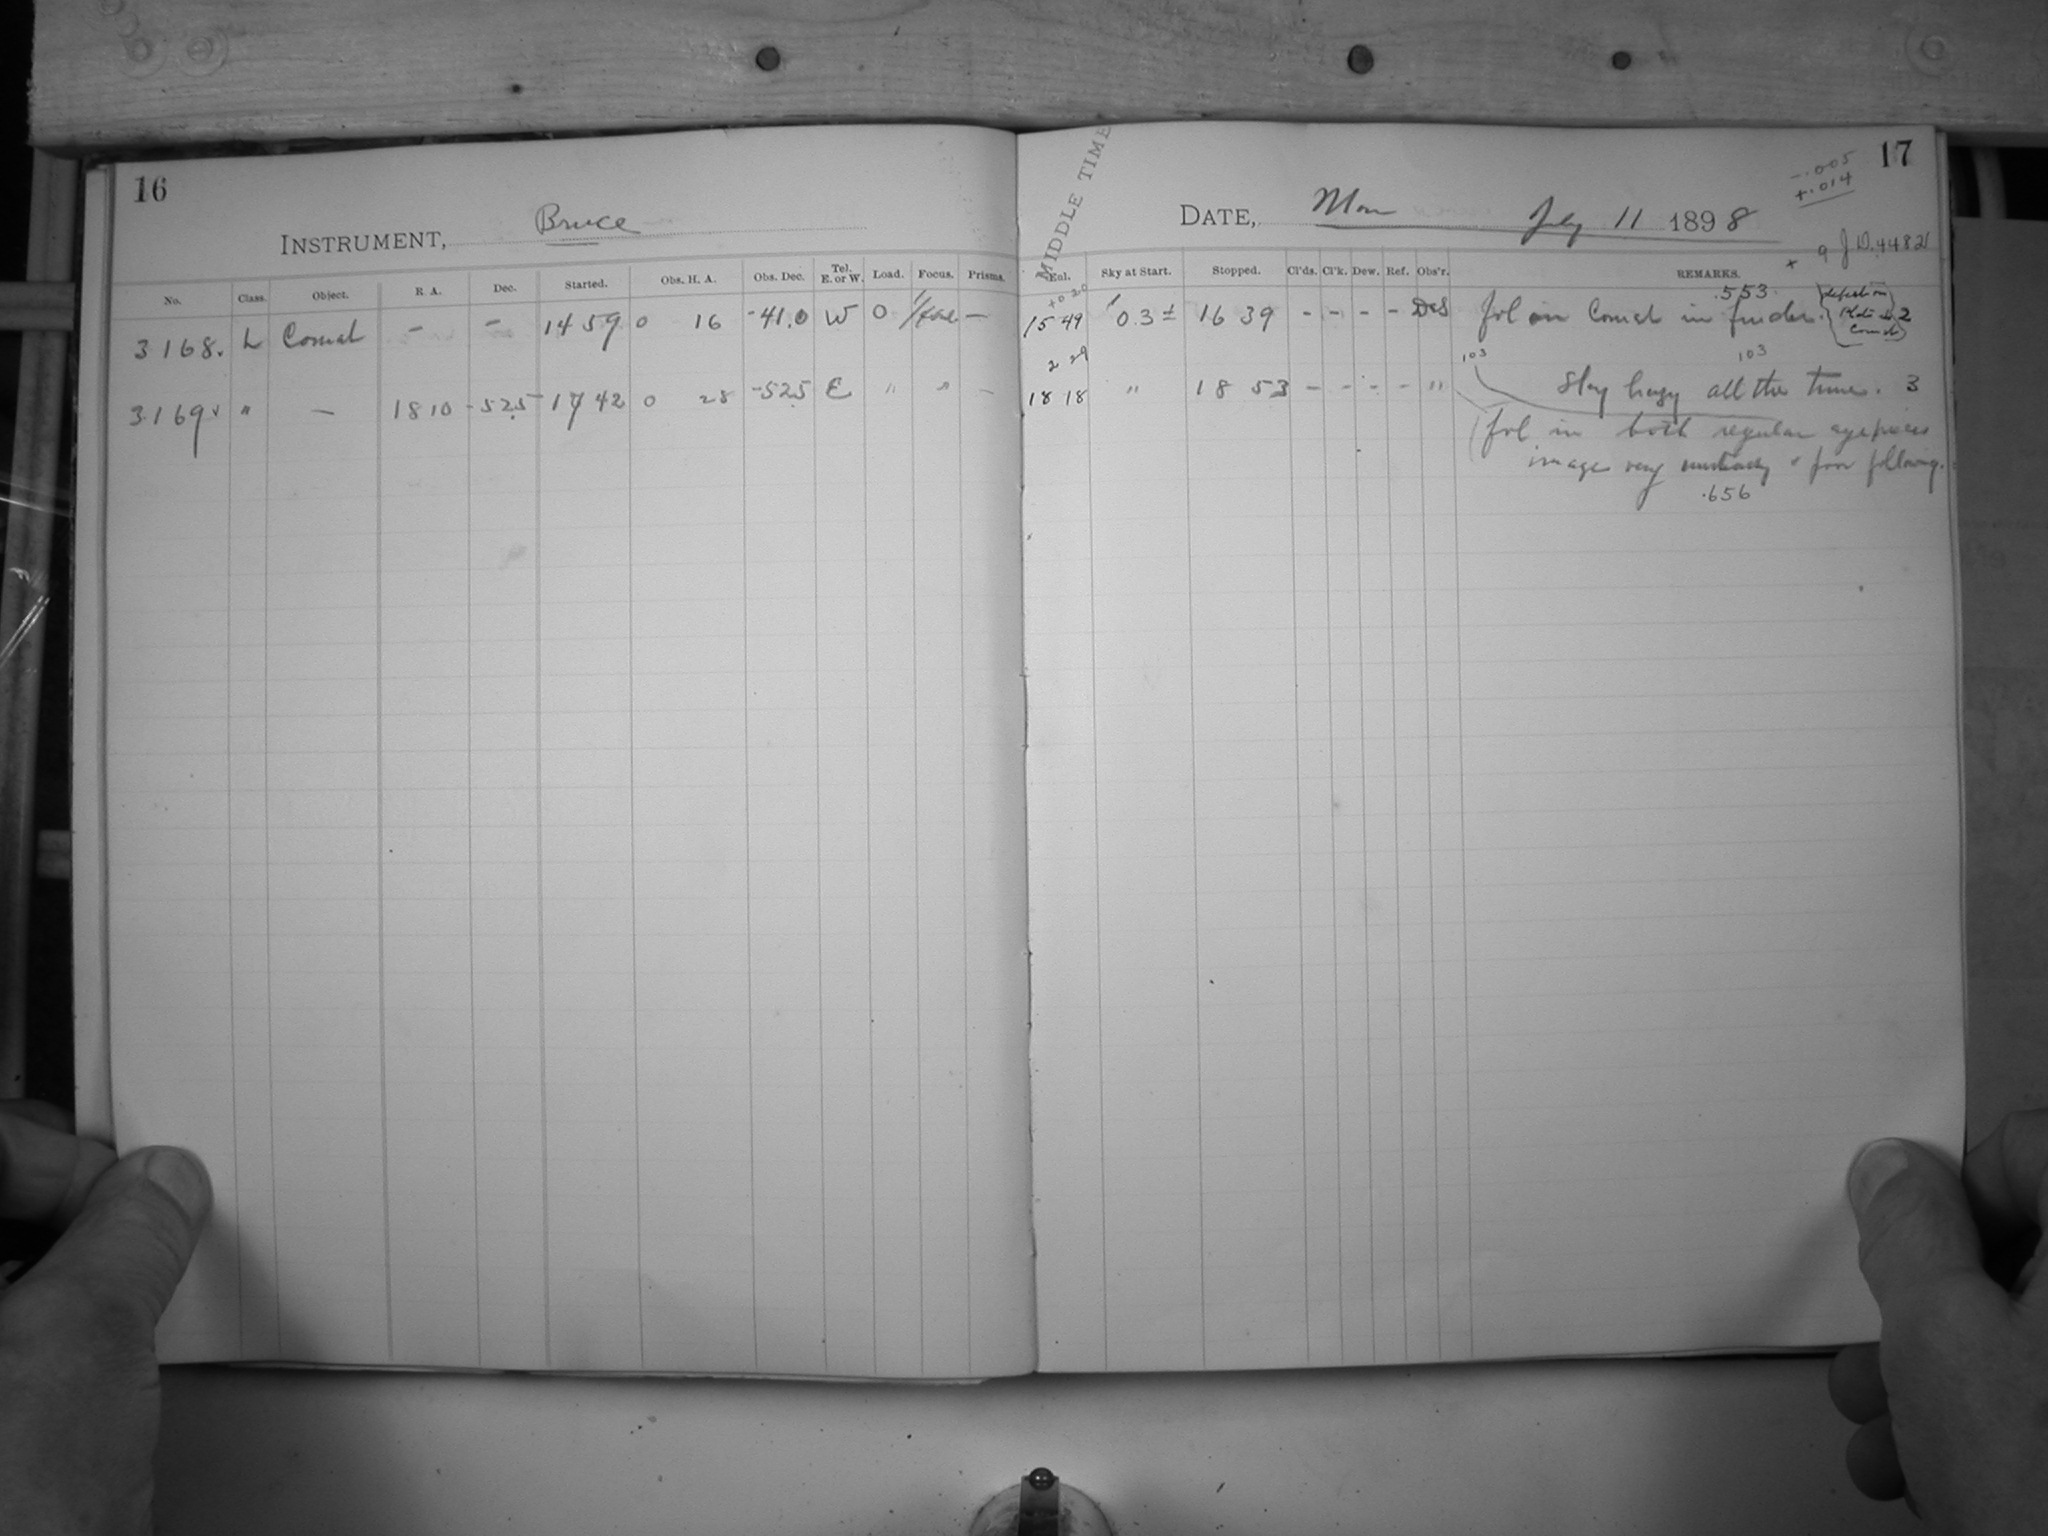 16
INSTRUMENT, Bruce
No. Class. Object. R. A. Dec. Started. Obs. H. A. Obs. Dec. Tel. E. or W. Load. Focus. Prisms.
3168. L Comet - - 14 59 0 16 -41.0 W 0 —
3169 " — 18 10 -52.5 17 42 0 28 -52.5 E " " —
17
-.005
+.014
MIDDLE TIME
DATE, Mon July 11 1898
J.D. 4482
Enl. Sky at Start. Stopped. Cl'ds. Cl'k. Dew. Ref. Obs'r. REMARKS.
.553
15 49 0.3 ± 16 39 - - - - fol on Comet in finder. 2
2 29
103 103
18 18 " 18 53 - - - - " Sky hazy all the time. 3
fol in both regular eyepieces
image very unsteady & poor following.
.656